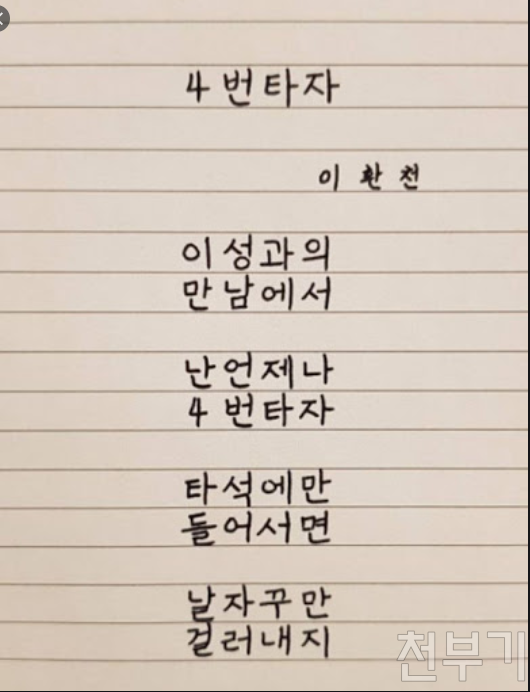 4번타자
이환천
이성과의
만남에서
난언제나
4번타자
타석에만
들어서면
날자꾸만
걸러내지
천부기